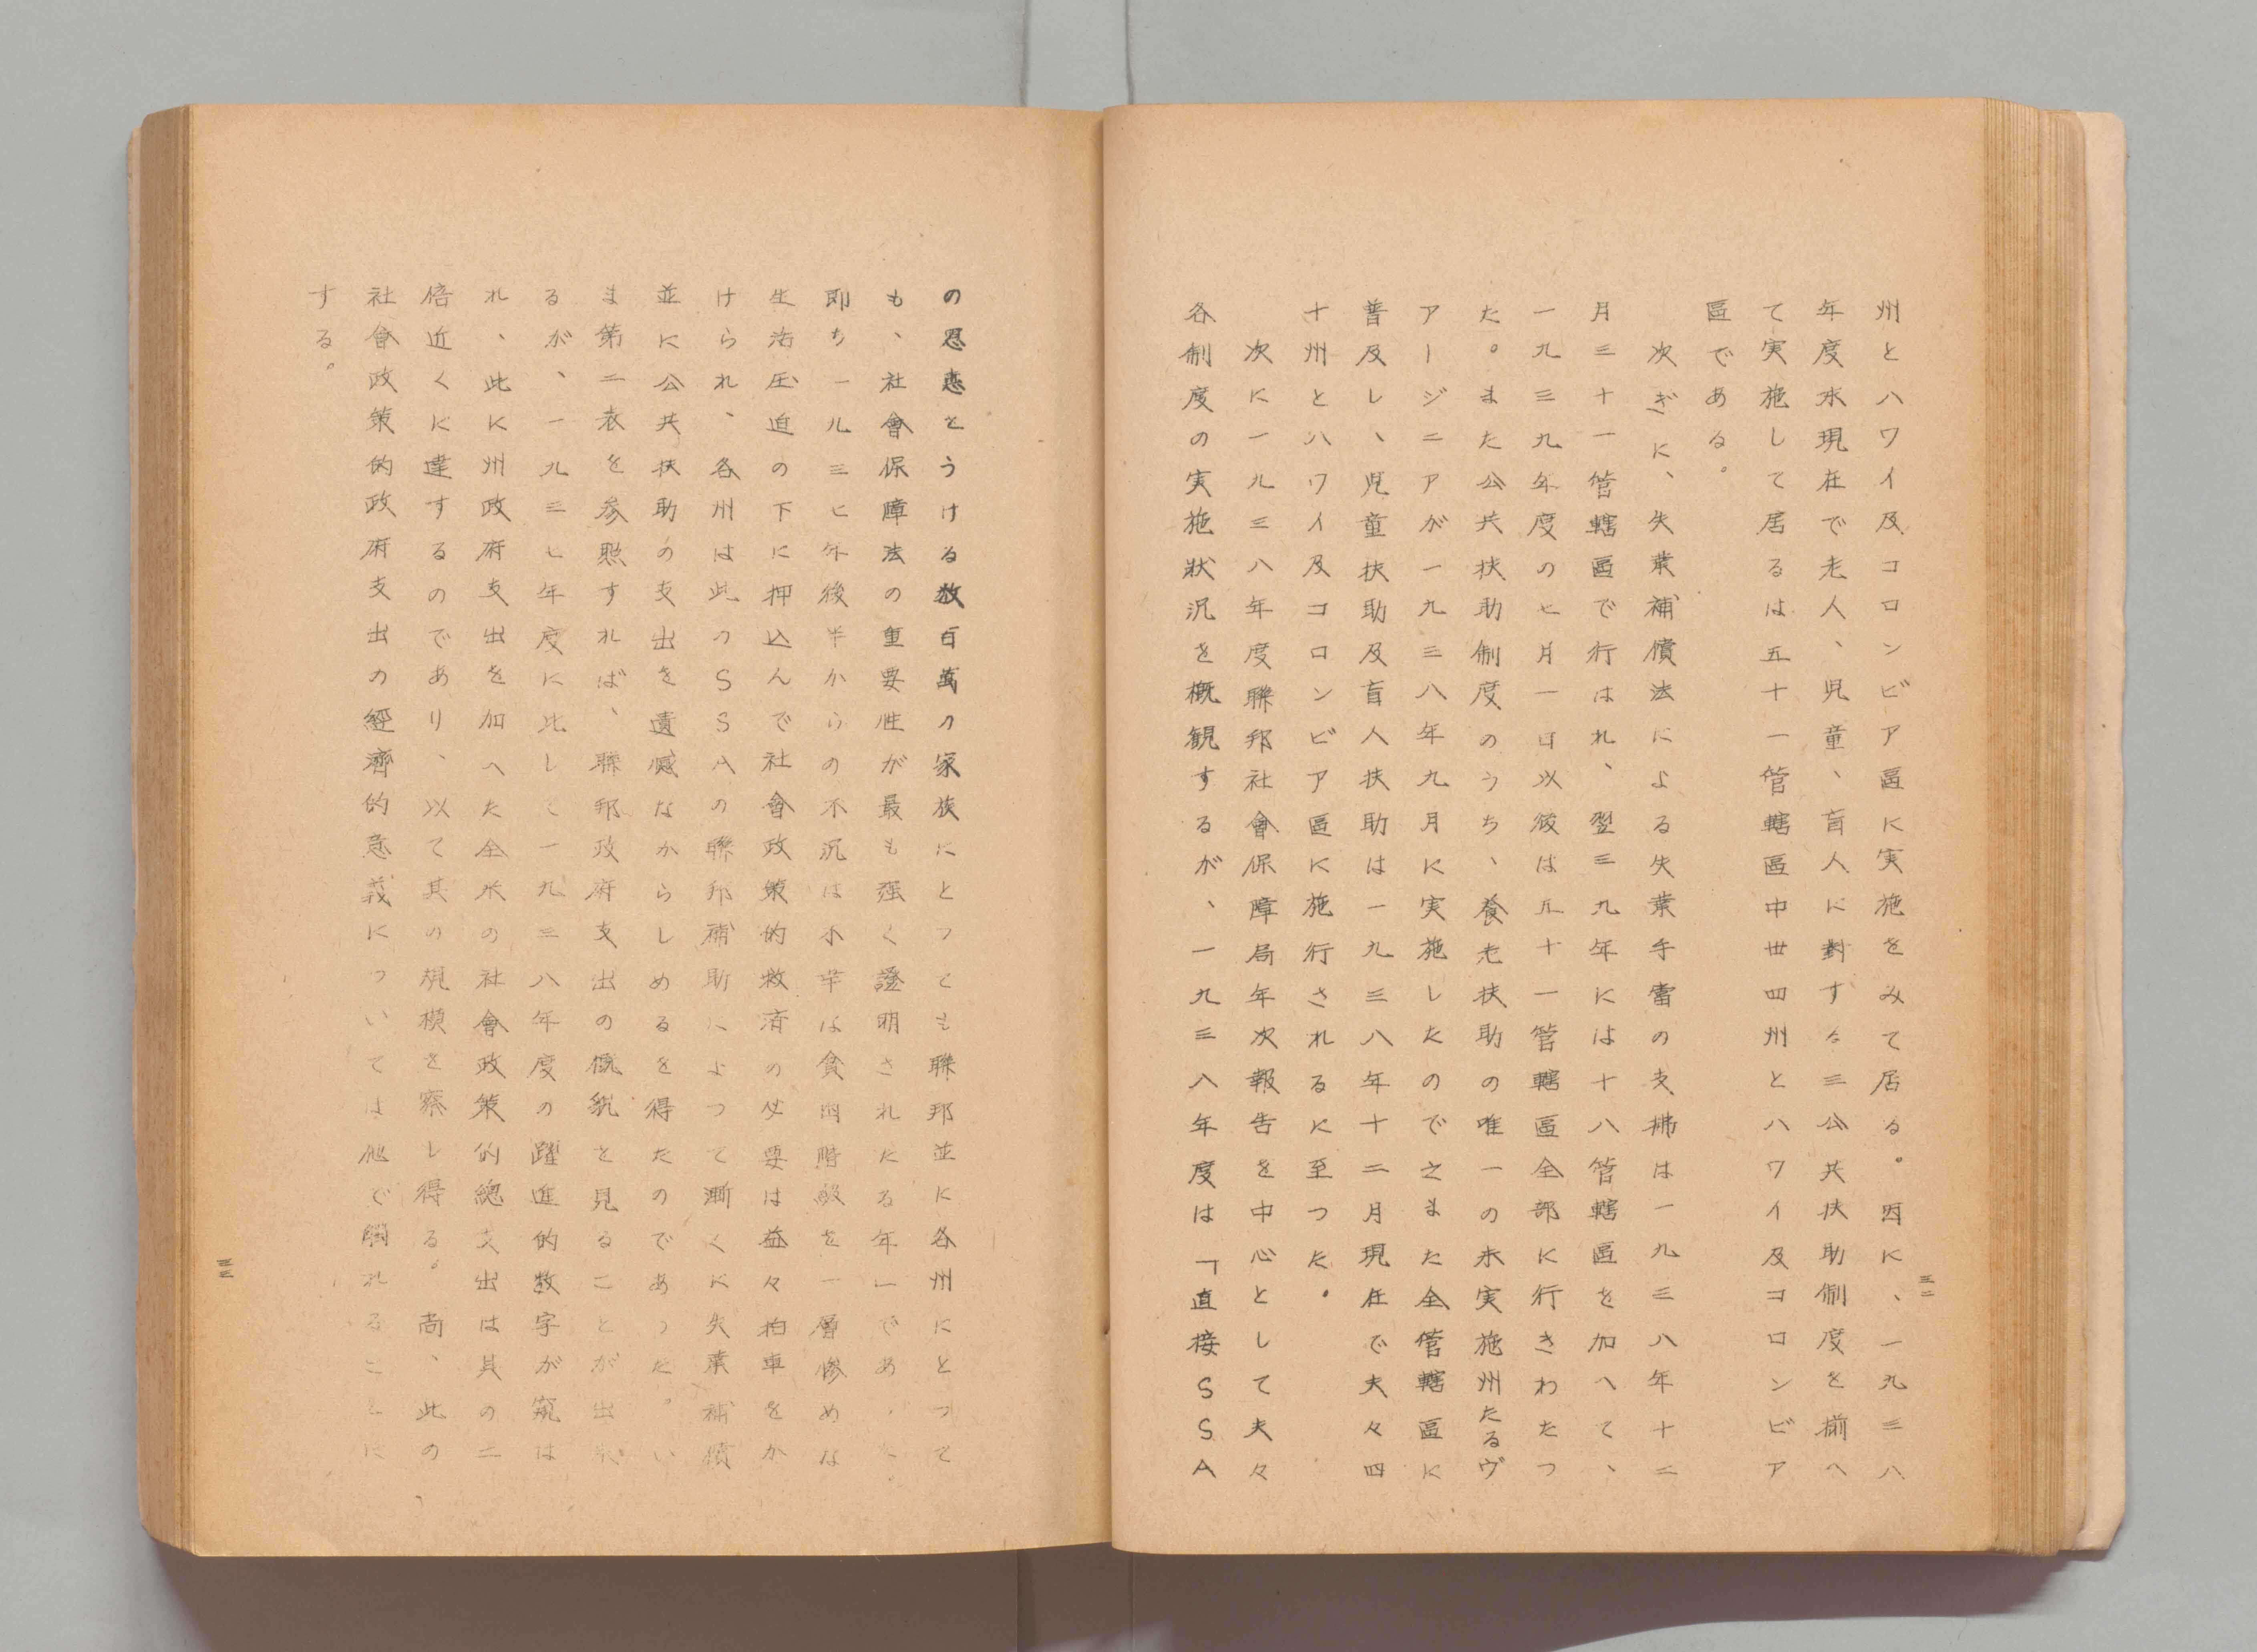 三二
州とハワイ及コロンビア區に実施をみて居る。因に、一九三八
年度末現在で老人、児童、盲人に對する三公共扶助制度を揃へ
て実施して居るは五十一管轄區中卅四州とハワイ及コロンビア
區である。
次ぎに、失業補償法による失業手當の支拂は一九三八年十二
月三十一管轄區で行はれ、翌三九年には十八管轄區を加へて、
一九三九年度の七月一日以後は五十一管轄區全部に行きわたつ
た。また公共扶助制度のうち、養老扶助の唯一の未実施州たるヴ
アージニアが一九三八年九月に実施したので之また全管轄區に
普及し、児童扶助及盲人扶助は一九三八年十二月現在で夫々四
十州とハワイ及コロンビア區に施行されるに至つた。
次に一九三八年度聯邦社會保障局年次報告を中心として夫々
各制度の実施狀況を概観するが、一九三八年度は「直接SSA
の恩恵をうける数百萬の家族にとつても聯邦並に各州にとつて
も、社會保障法の重要性が最も强く證明されたる年」であつた。
即ち一九三七年後半からの不況は不幸は貧困階級を一層惨めな
生活圧迫の下に押込んで社會政策的救済の必要は益々拍車をか
けられ、各州は此のSSAの聯邦補助によつて漸くに失業補償
並に公共扶助の支出を遺憾なからしめるを得たのであつた。い
ま第二表を参照すれば、聯邦政府支出の概貌を見ることが出来
るが、一九三七年度に比して一九三八年度の躍進的数字が窺は
れ、此に州政府支出を加へた全米の社會政策的總支出は其の二
倍近くに達するのであり、以て其の規模を察し得る。尚、此の
社會政策的政府支出の經濟的意義については他で觸れることに
する。
三三